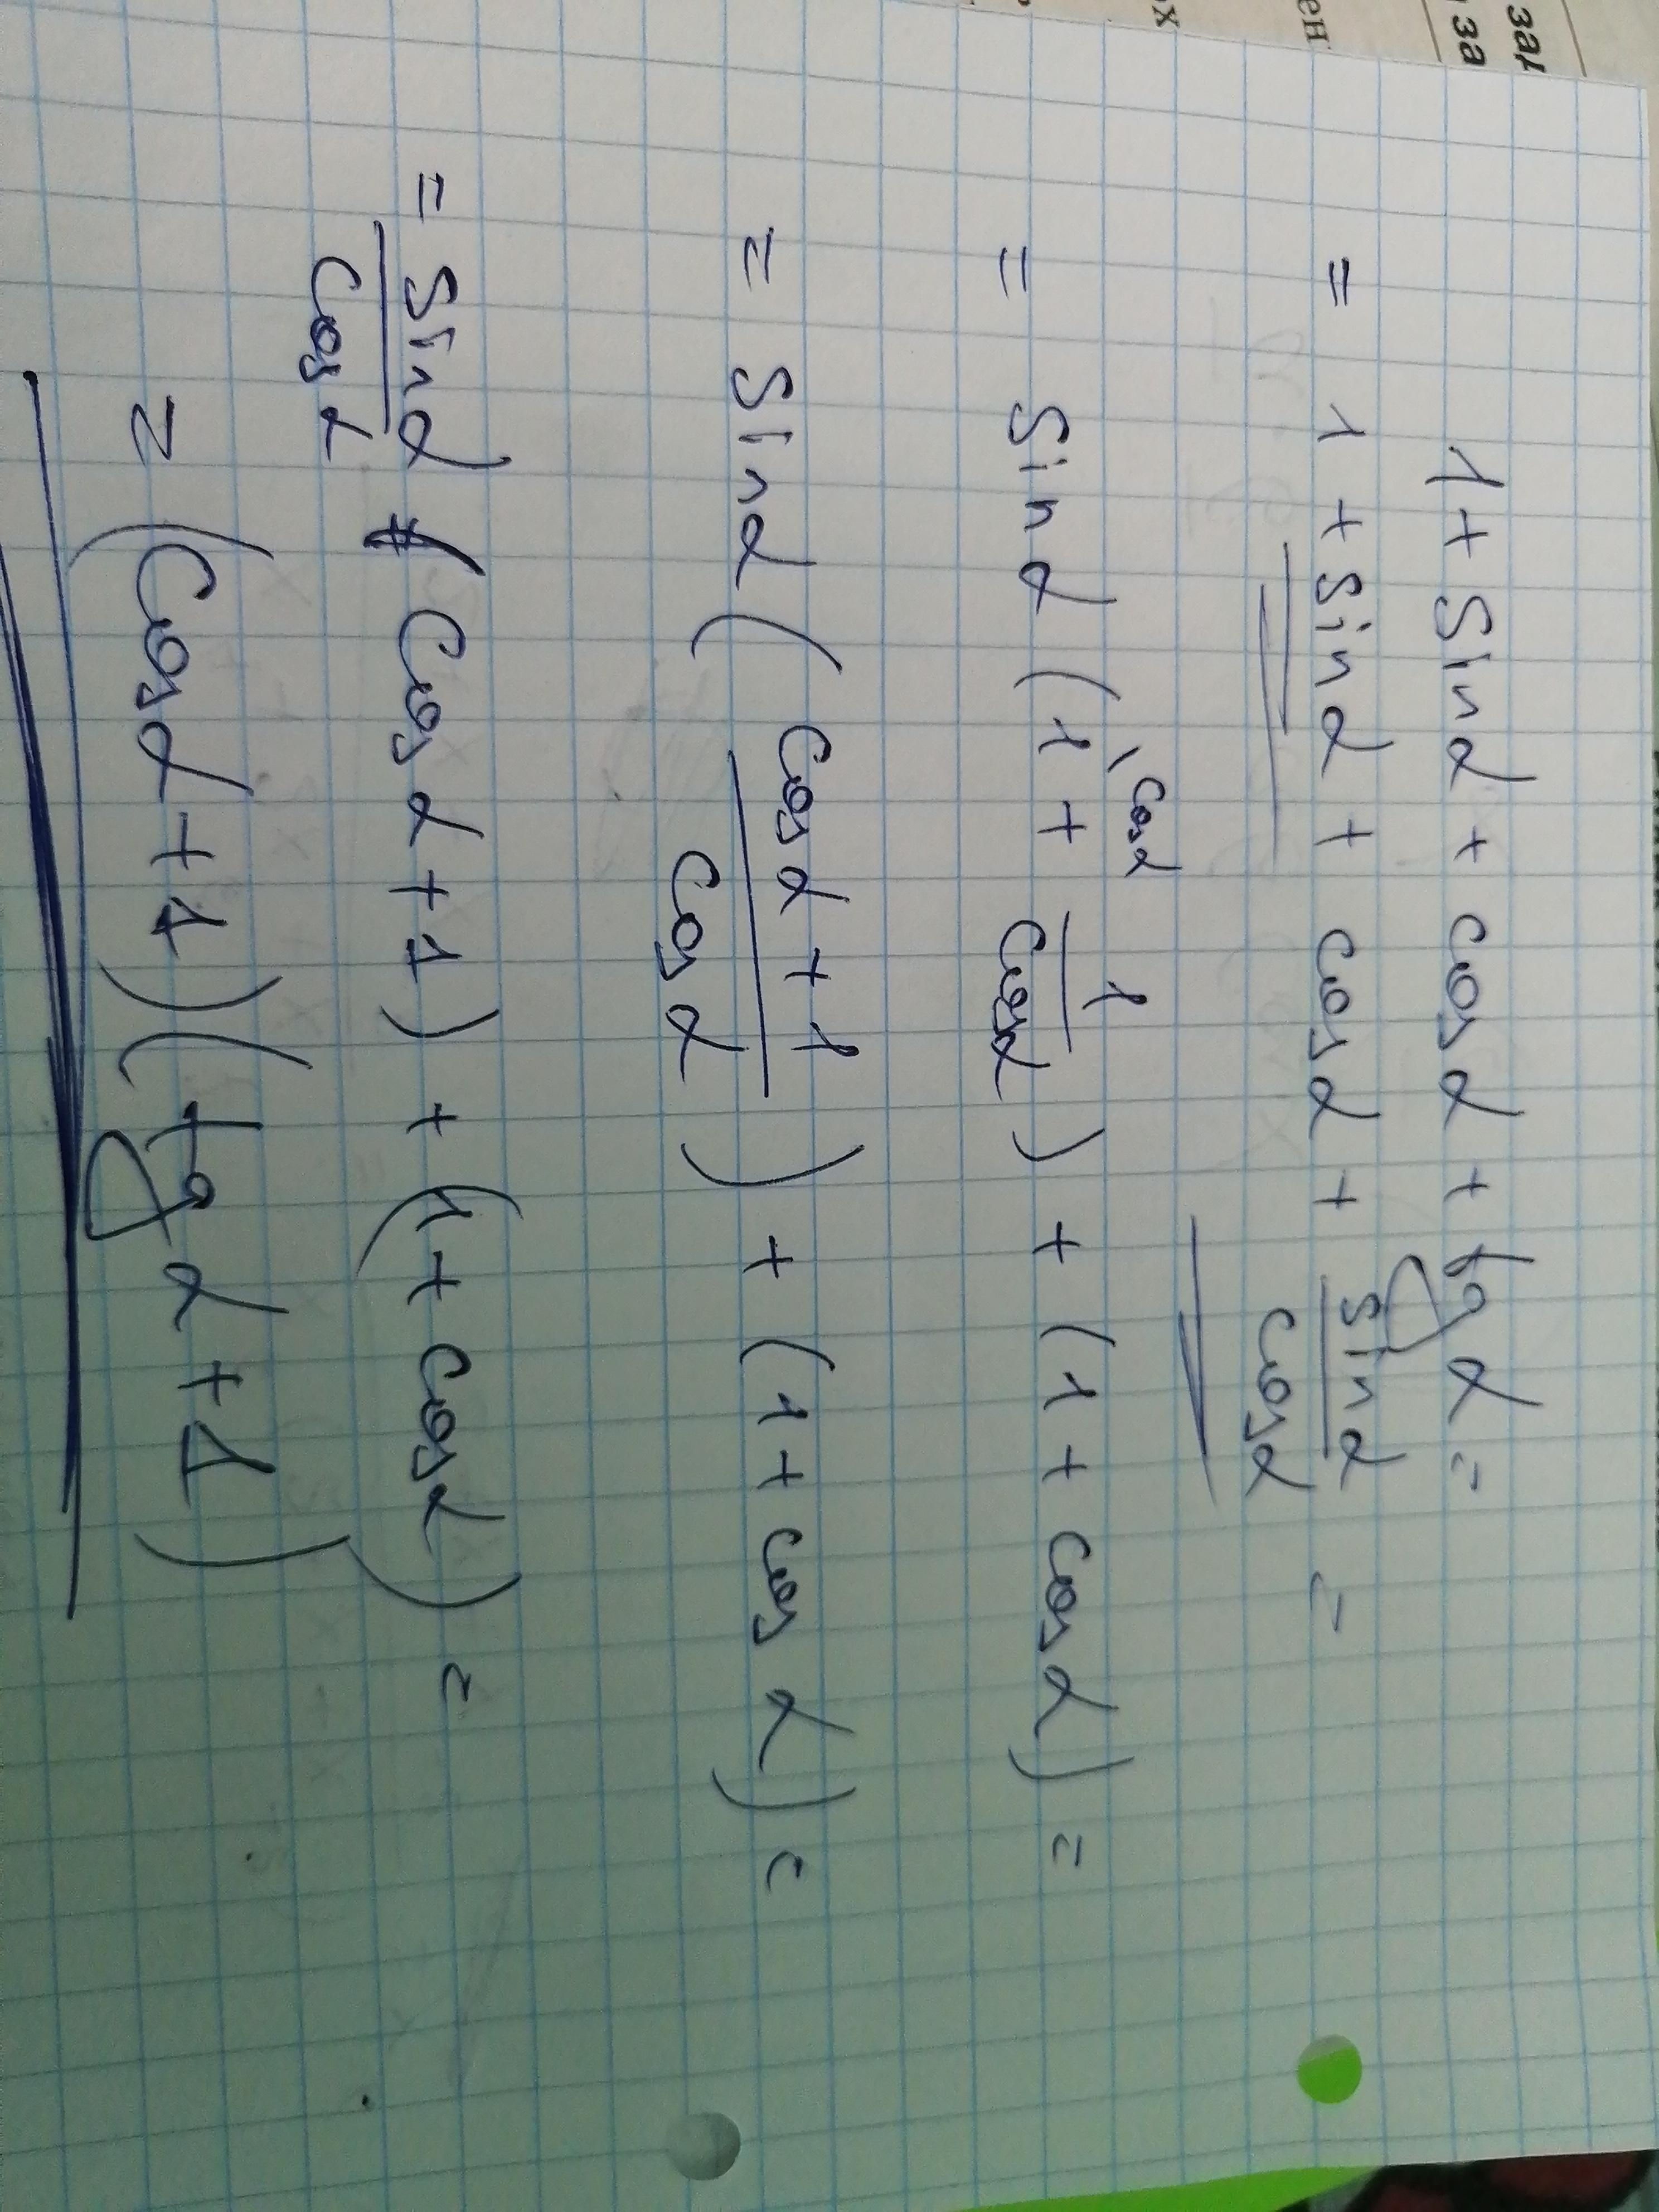 1 + Sin α + cos α + tg α =
= 1 + Sin α + cos α + sin α / cos α =
= Sin α (1\cos α + 1 / cos α) + (1 + cos α) =
= Sin α (cos α + 1 / cos α) + (1 + cos α) =
= Sin α / Cos α (Cos α + 1) + (1 + cos α) =
= (Cos α + 1)(tg α + 1)